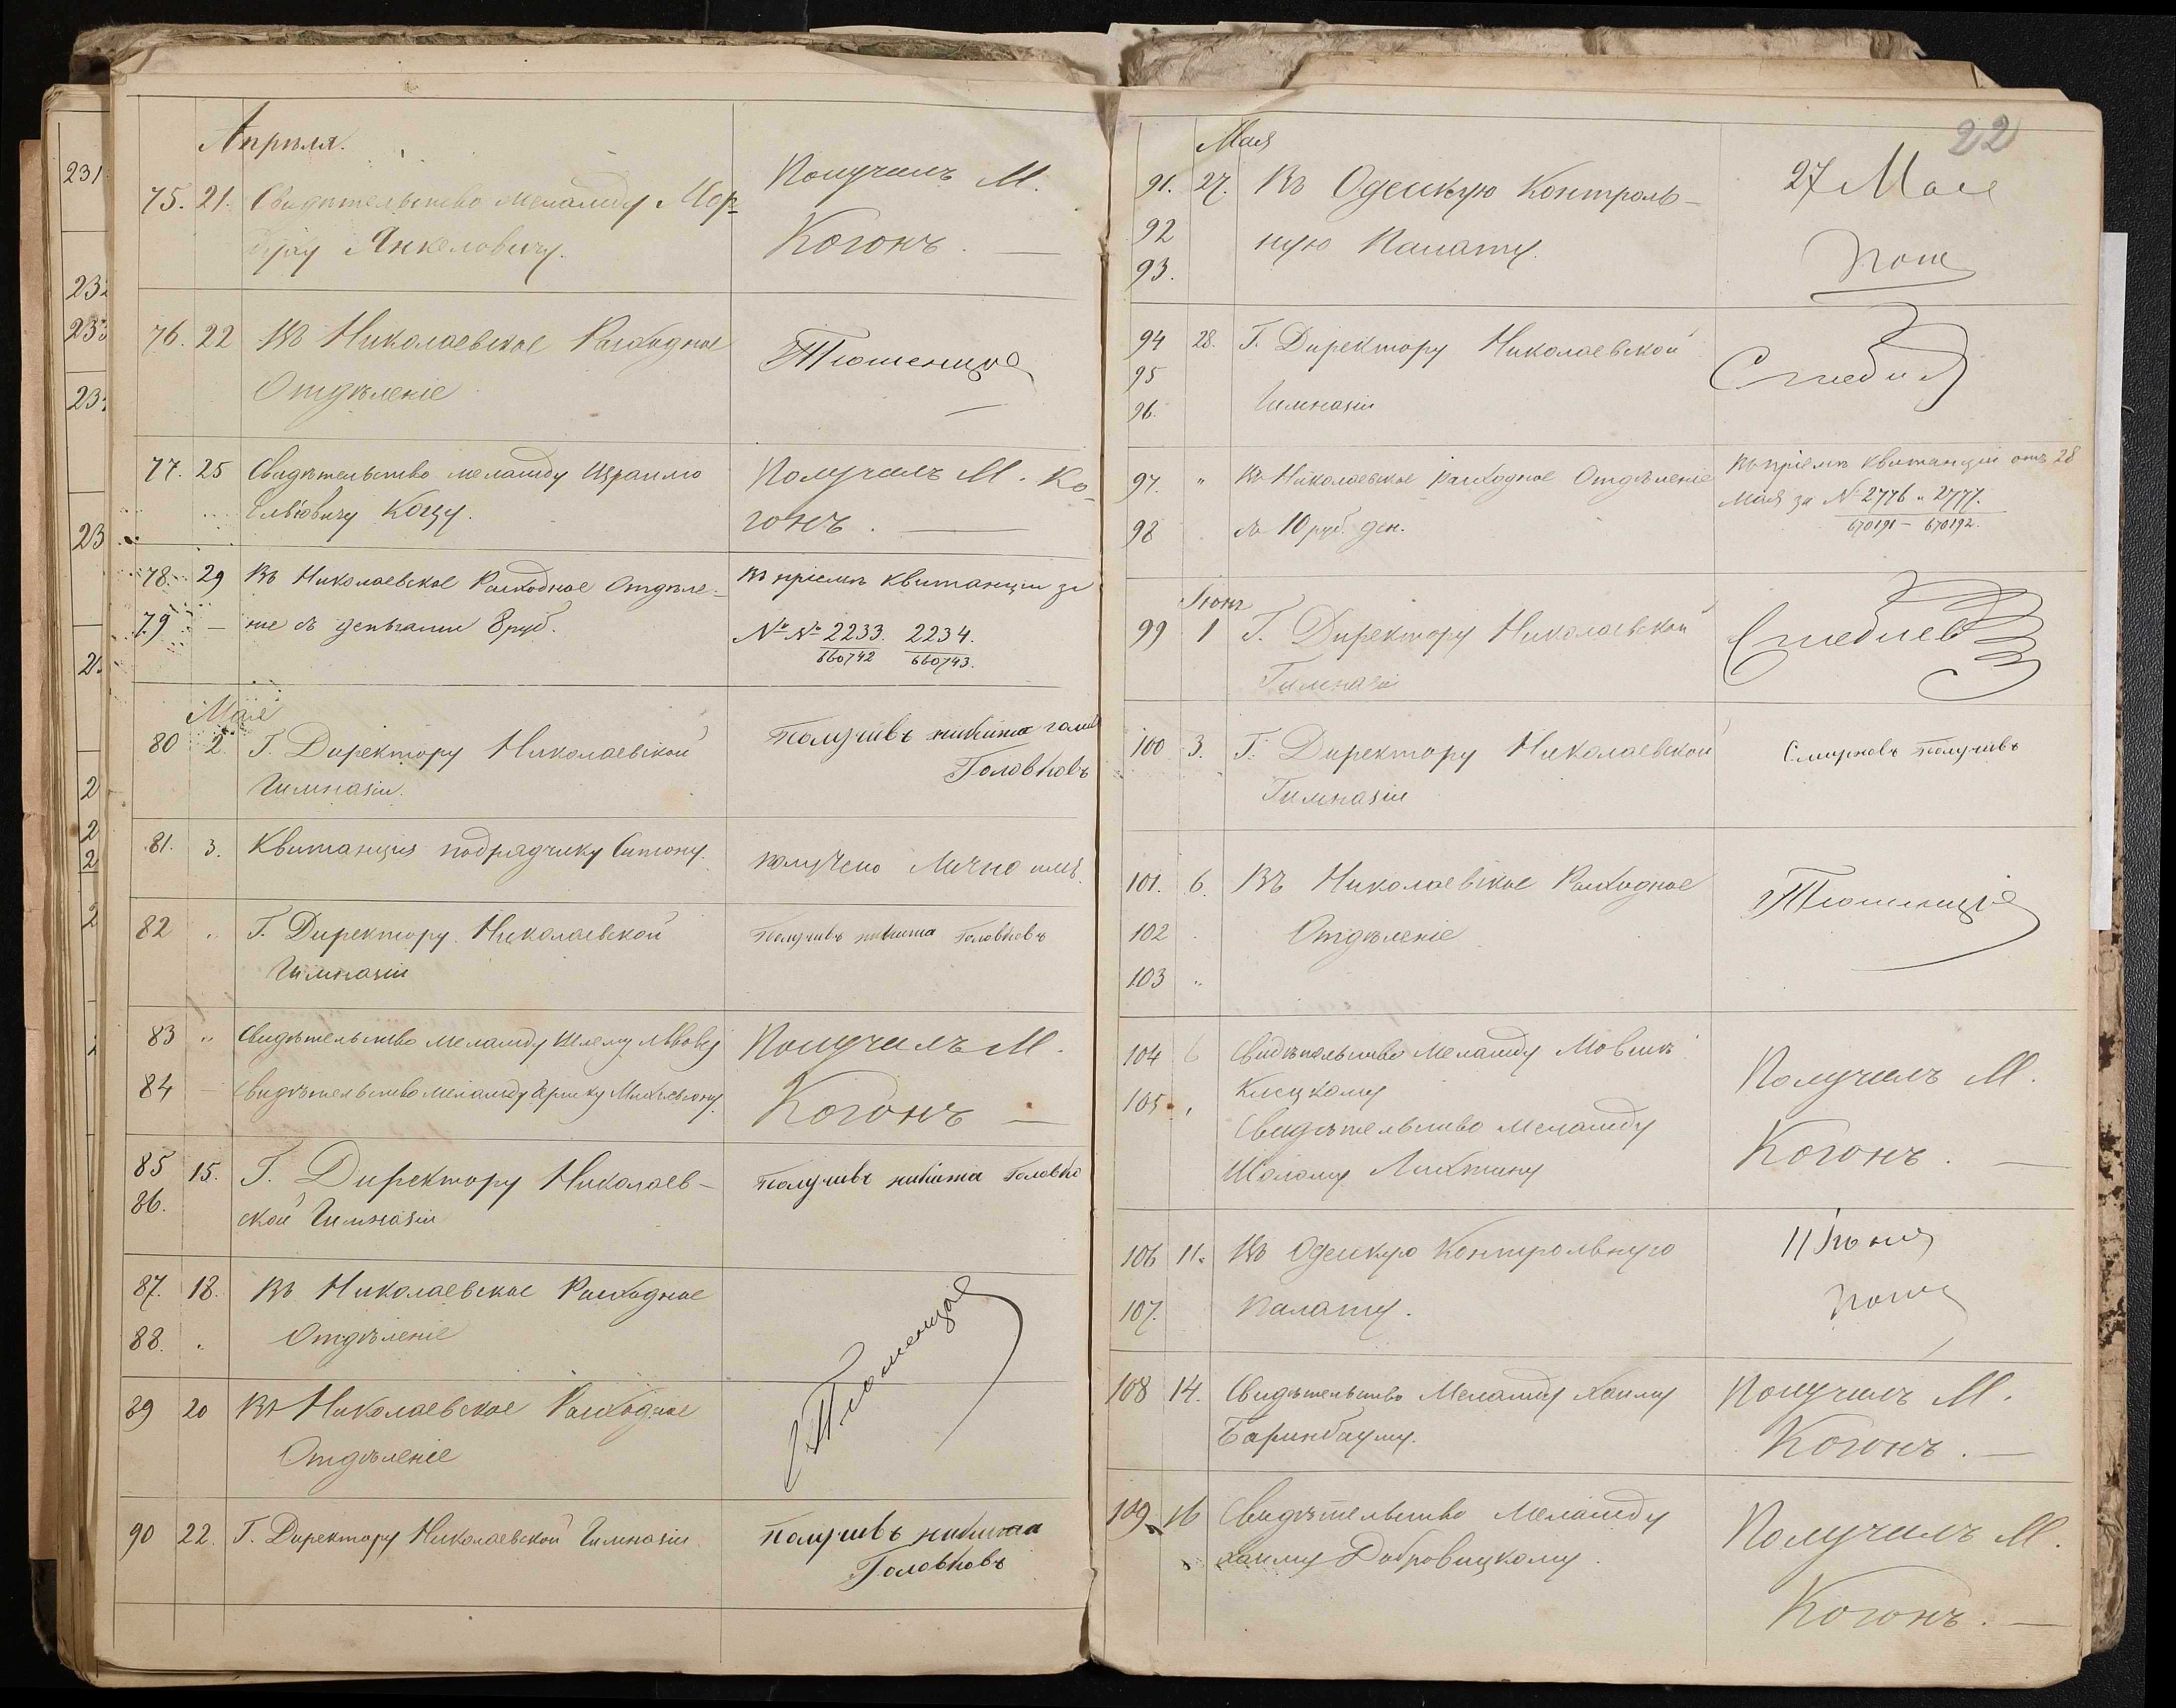 Апрѣля.
75. 21. Свидѣтельство меламду Мор-
Янкеловичу.
Получилъ М.
Когонъ. —
76. 22 Въ Николаевское Расходное
Отдѣленіе
77. 25 Свидѣтельство меламду Израилю
Когу.
Получилъ М. Ко-
гонъ. —
78. 29 Въ Николаевское Расходное Отдѣле-
79 — ніе съ деньгами 8 руб.
Въ пріемѣ квитанціи за
№ № 2233. 2234.
660742 660743.
Мая
80 2. Г. Директору Николаевской
Гимназіи.
Получивъ никита
Головковъ
81. 3. Квитанція подрядчику Ситону.
получено Лично
82 " Г. Директору Николаевской
Гимназіи
Получивъ никита Головковъ
83 " Свидѣтельство меламду
84 Свидѣтельство меламду
Получилъ М.
Когонъ —
85 15. Г. Директору Николаев-
86. ской Гимназіи
Получивъ никита Головко
87. 18. Въ Николаевское Расходное
88. " Отдѣленіе
89 20 Въ Николаевское Расходное
Отдѣленіе
90 22. Г. Директору Николаевской Гимназіи
Получивъ никита
Головковъ
22
Мая
91. 27. Въ Одесскую Контроль-
92 ную Палату.
93.
27 Мая
94 28. Г. Директору Николаевской
95
96. Гимназіи
97. " Въ Николаевское Расходное Отдѣленіе
98 съ 10 руб. ден.
Въ пріемѣ квитанціи отъ 28
Мая за № 2776 и 2777.
670191 — 670192.
Іюнь
99 1 Г. Директору Николаевской
Гимназіи
100 3. Г. Директору Николаевской
Гимназіи
Смирновъ получивъ
101. 6. Въ Николаевское Расходное
102 Отдѣленіе
103 "
104 6 Свидѣтельство Меламду
105
Свидѣтельство меламду
Шолому
Получилъ М.
Когонъ. —
106 11. Въ Одесскую Контрольную
107. Палату.
11 Іюня
108 14. Свидѣтельство Меламду Хаиму
Баринбауму.
Получилъ М.
Когонъ. —
109 16 Свидѣтельство Меламду
Хаиму Добровицкому.
Получилъ М.
Когонъ. —